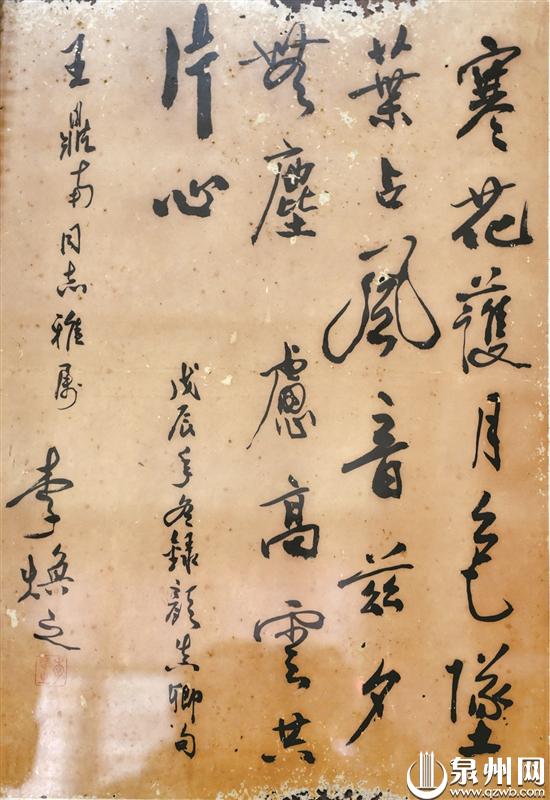 寒花護月色墜
葉占風音茲夕
無塵慮高雲共
片心
戊辰年冬錄顏真卿句
王鼎南同志雅屬
李煥之
泉州网
www.qzwb.com